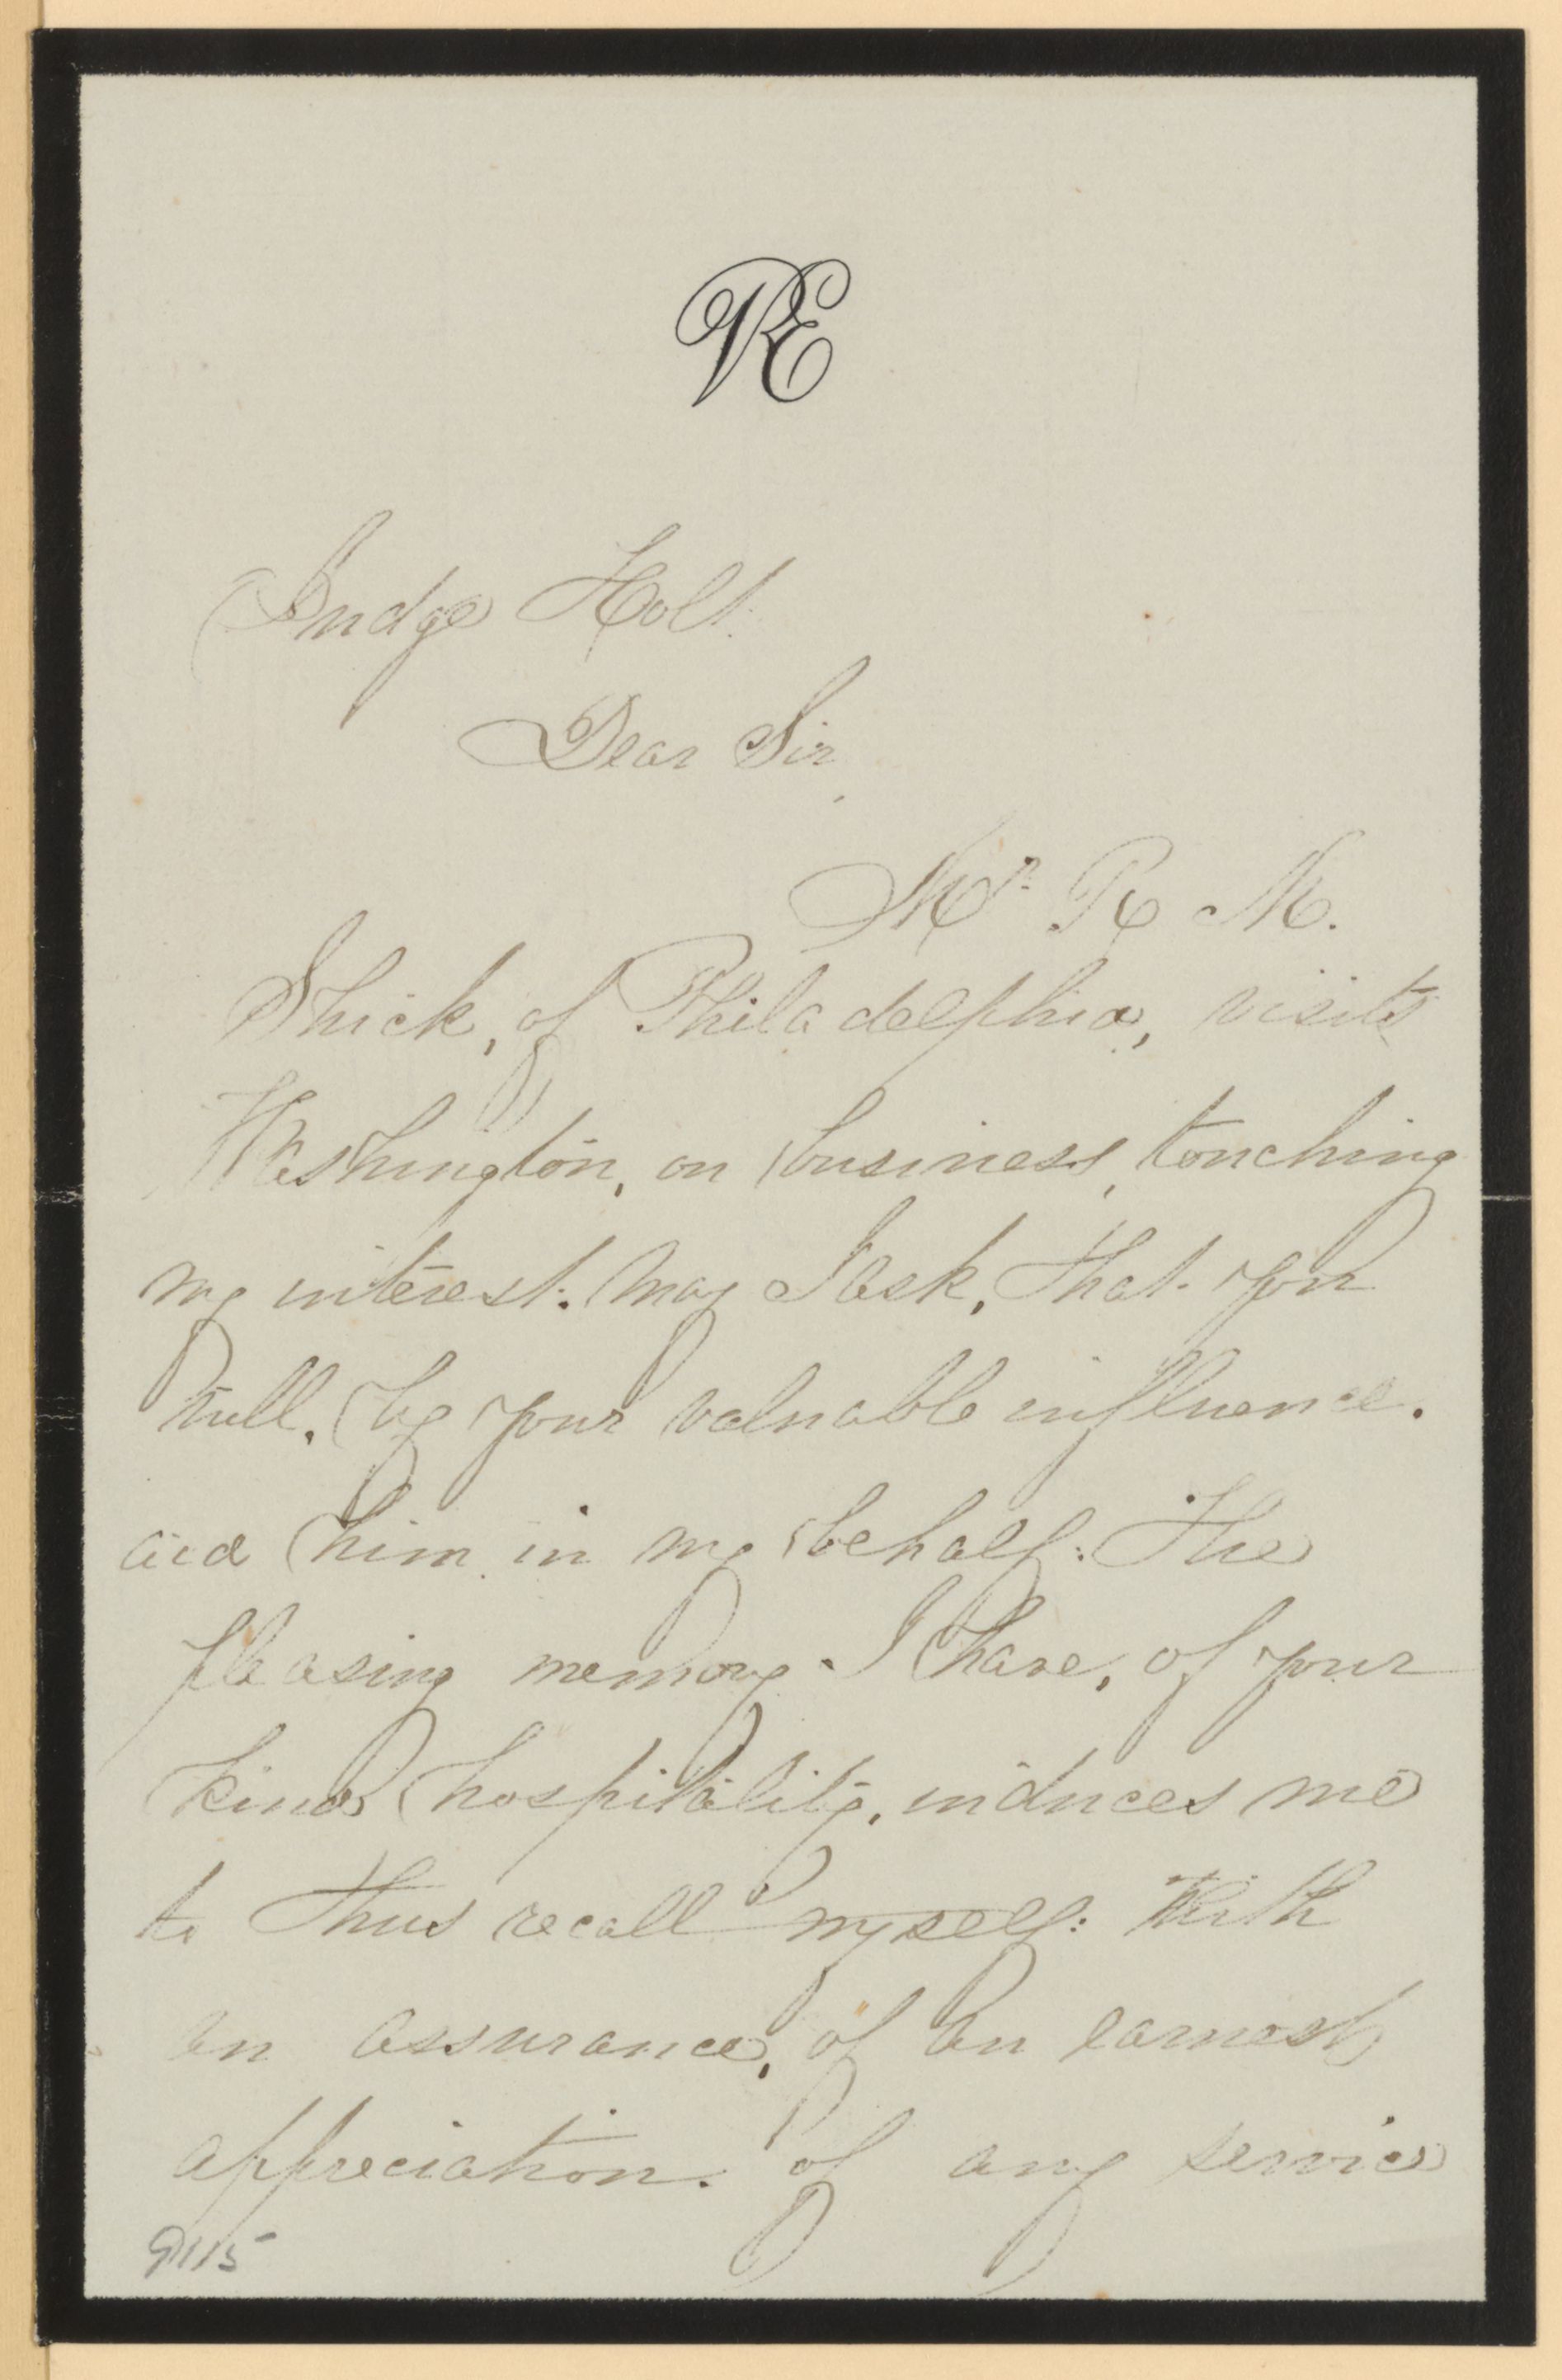 RE
Judge Holt.
Dear Sir,
Mr. R M.
Shick, of Philadelphia, visits
Washington, on business, touching
my interest: may I ask, that you
will, by your valuable influence.
aid him in my behalf: The
pleasing memory I have, of your
kind hospitality, induces me
to thus recall myself: With
an assurance, of an earnest
appreciation. of any service
9115